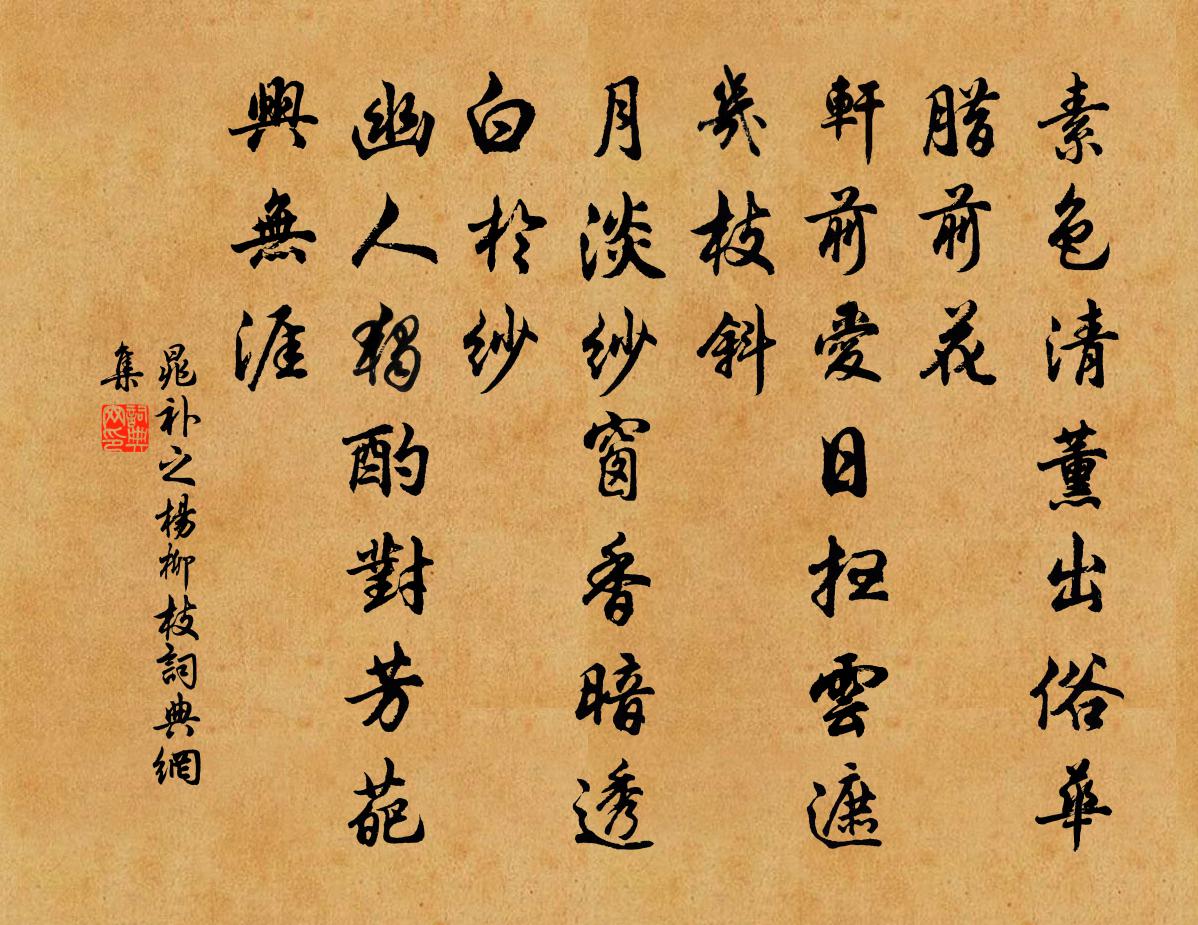 素色清薰出俗華
腊前花
軒前愛日扫雲遮
幾枝斜
月淡紗窗香暗透
白於紗
幽人獨酌對芳葩
興無涯
晁补之楊柳枝詞典網
集
詞典网印